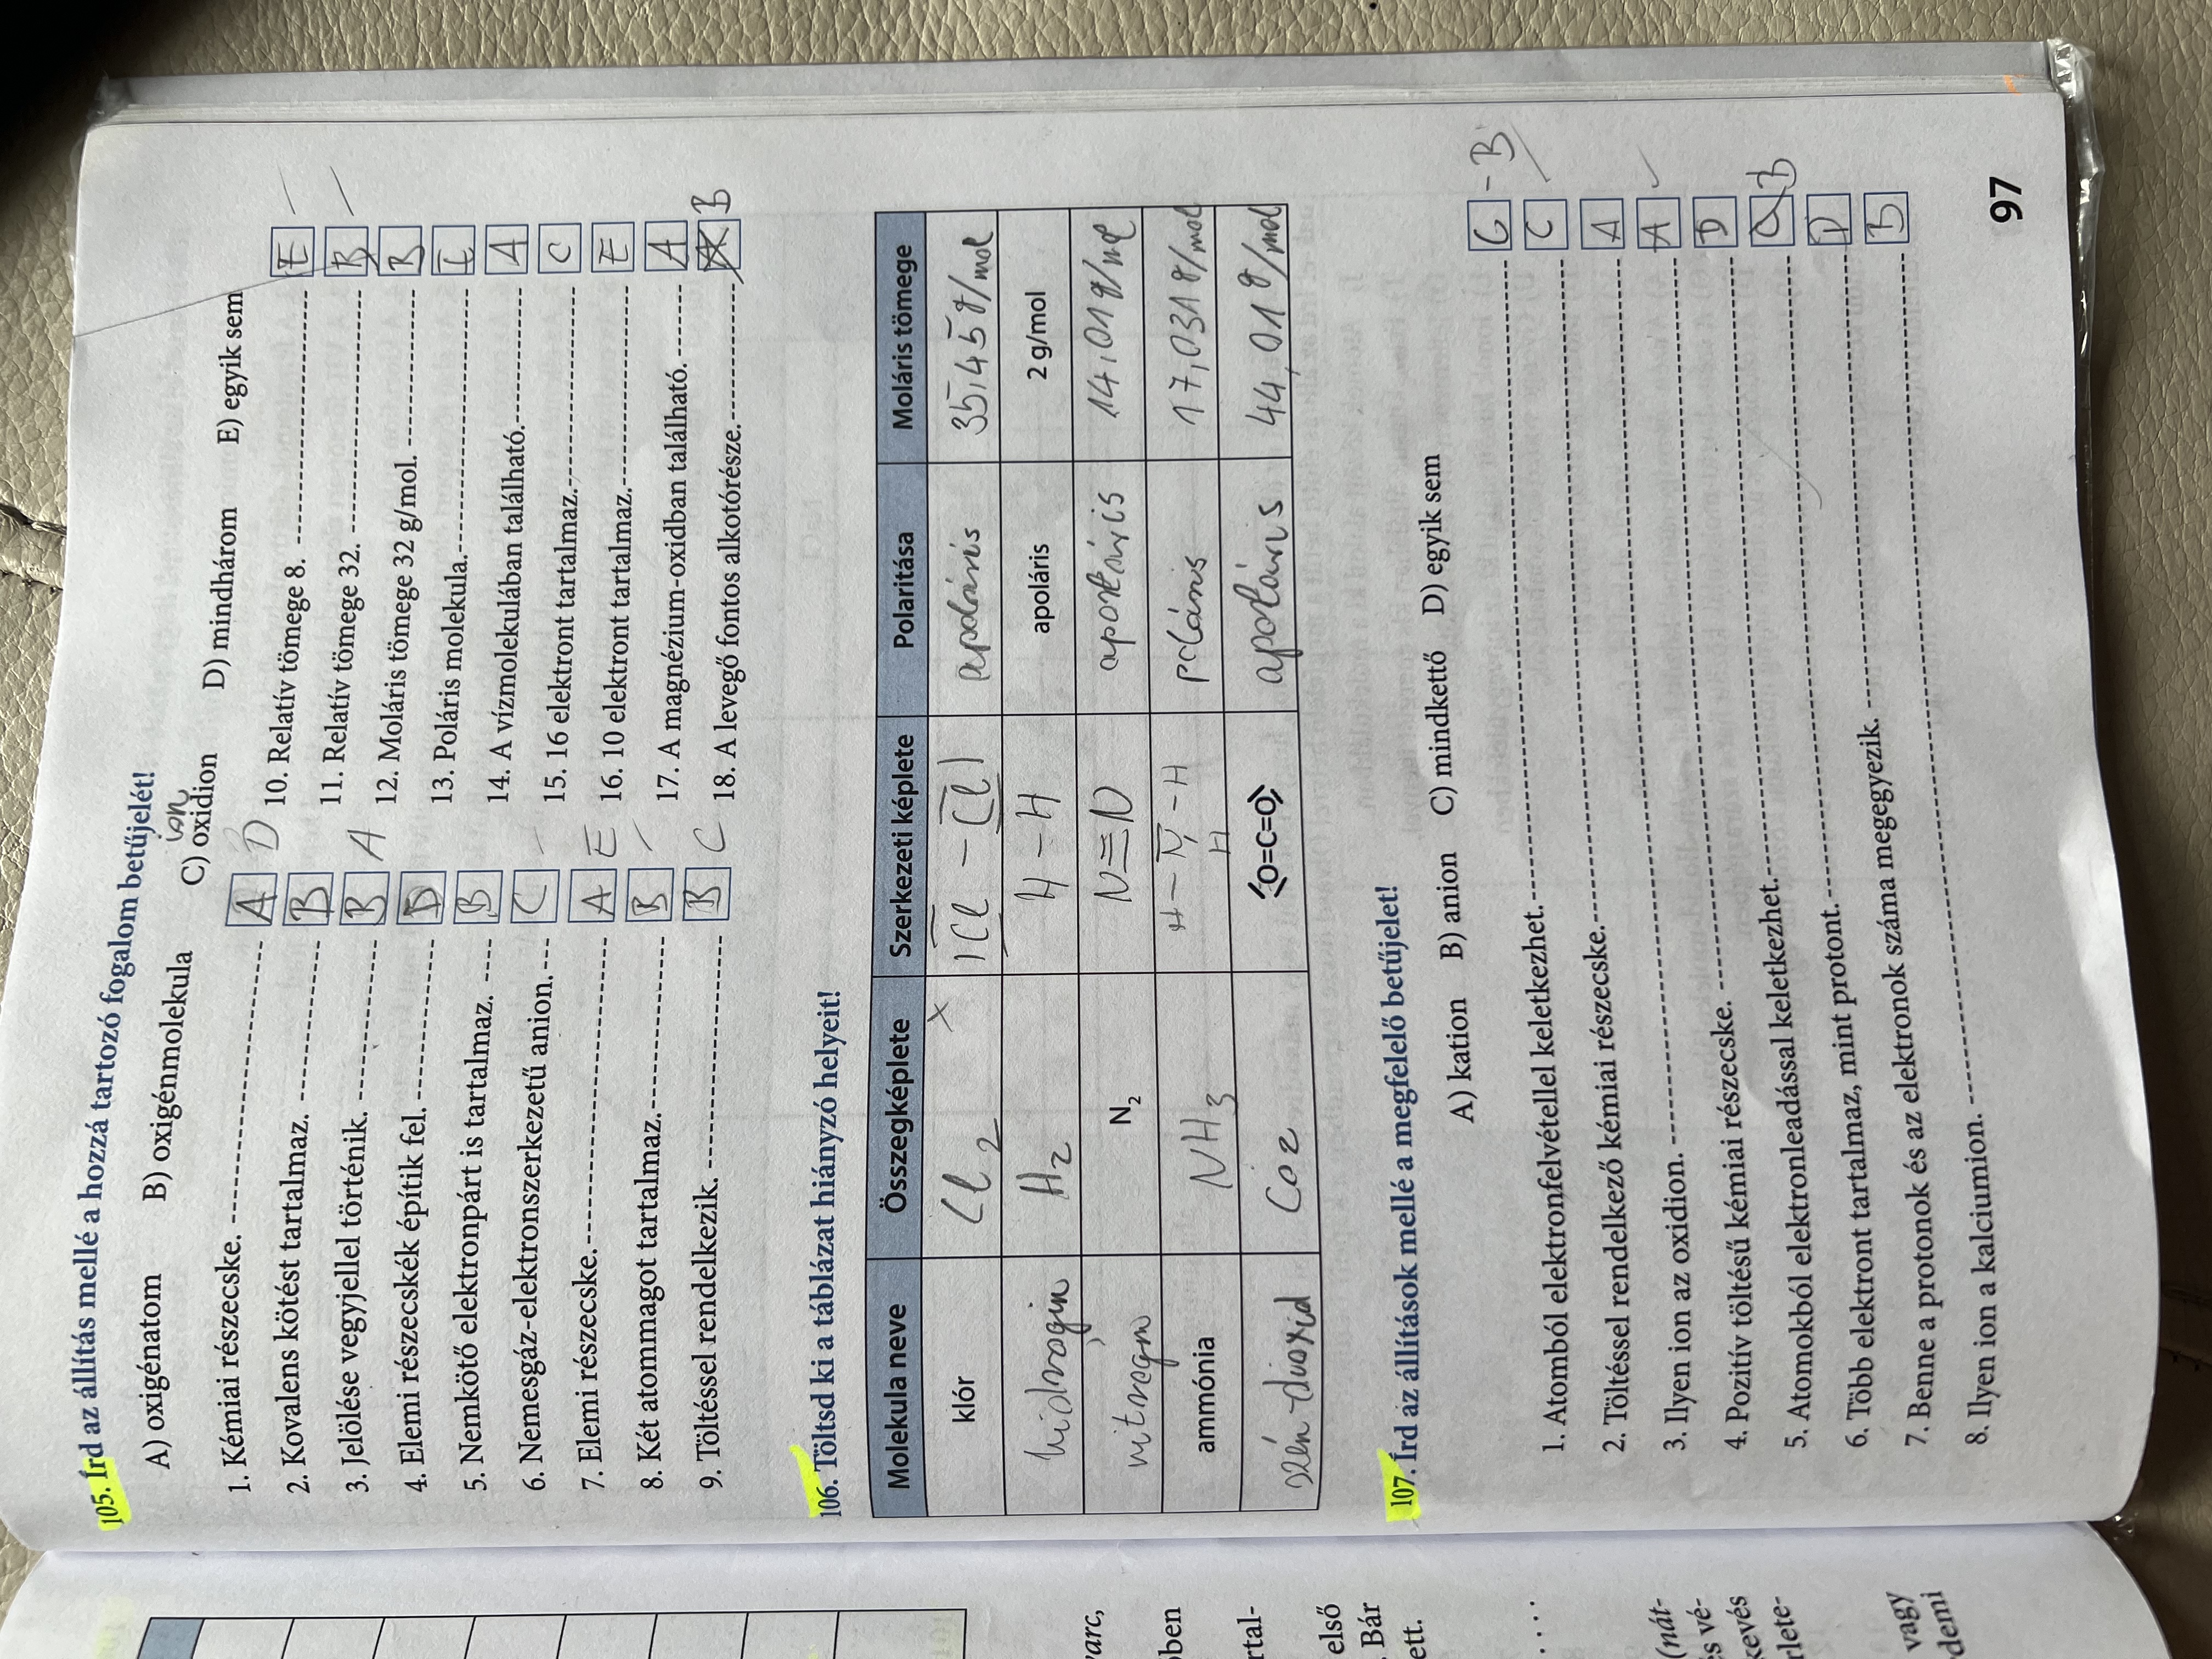 105. Írd az állítás mellé a hozzá tartozó fogalom betűjelét!
A) oxigénatom B) oxigénmolekula C) oxidion D) mindhárom E) egyik sem
ion
1. Kémiai részecske. A D
2. Kovalens kötést tartalmaz. B
3. Jelölése vegyjellel történik. B A
4. Elemi részecskék építik fel. D
5. Nemkötő elektronpárt is tartalmaz. B
6. Nemesgáz-elektronszerkezetű anion. C
7. Elemi részecske. A E
8. Két atommagot tartalmaz. B
9. Töltéssel rendelkezik. B C
10. Relatív tömege 8. E
11. Relatív tömege 32. B
12. Moláris tömege 32 g/mol. B
13. Poláris molekula.
14. A vízmolekulában található. A
15. 16 elektront tartalmaz. C
16. 10 elektront tartalmaz. E
17. A magnézium-oxidban található. A
18. A levegő fontos alkotórésze. B
106. Töltsd ki a táblázat hiányzó helyeit!
Molekula neve Összegképlete Szerkezeti képlete Polaritása Moláris tömege
klór Cl2 x |Cl - Cl| apoláris 35,45 g/mol
hidrogin H2 H - H apoláris 2 g/mol
nitrogn N2 N≡N apoláris 14,01 g/mol
ammónia NH3 H - N - H poláris 17,031 g/mol
H
szén-dioxid Co2 O=C=O apoláris 44,01 g/mol
107. Írd az állítások mellé a megfelelő betűjelet!
A) kation B) anion C) mindkettő D) egyik sem
1. Atomból elektronfelvétellel keletkezhet. C - B
2. Töltéssel rendelkező kémiai részecske. C
3. Ilyen ion az oxidion. A
4. Pozitív töltésű kémiai részecske. A
5. Atomokból elektronleadással keletkezhet. D
6. Több elektront tartalmaz, mint protont. B
7. Benne a protonok és az elektronok száma megegyezik. D
8. Ilyen ion a kalciumion. B
97
varc,
ben
rtal-
első
Bár
ett.
(nát-
s vé-
kevés
rlete-
vagy
demi